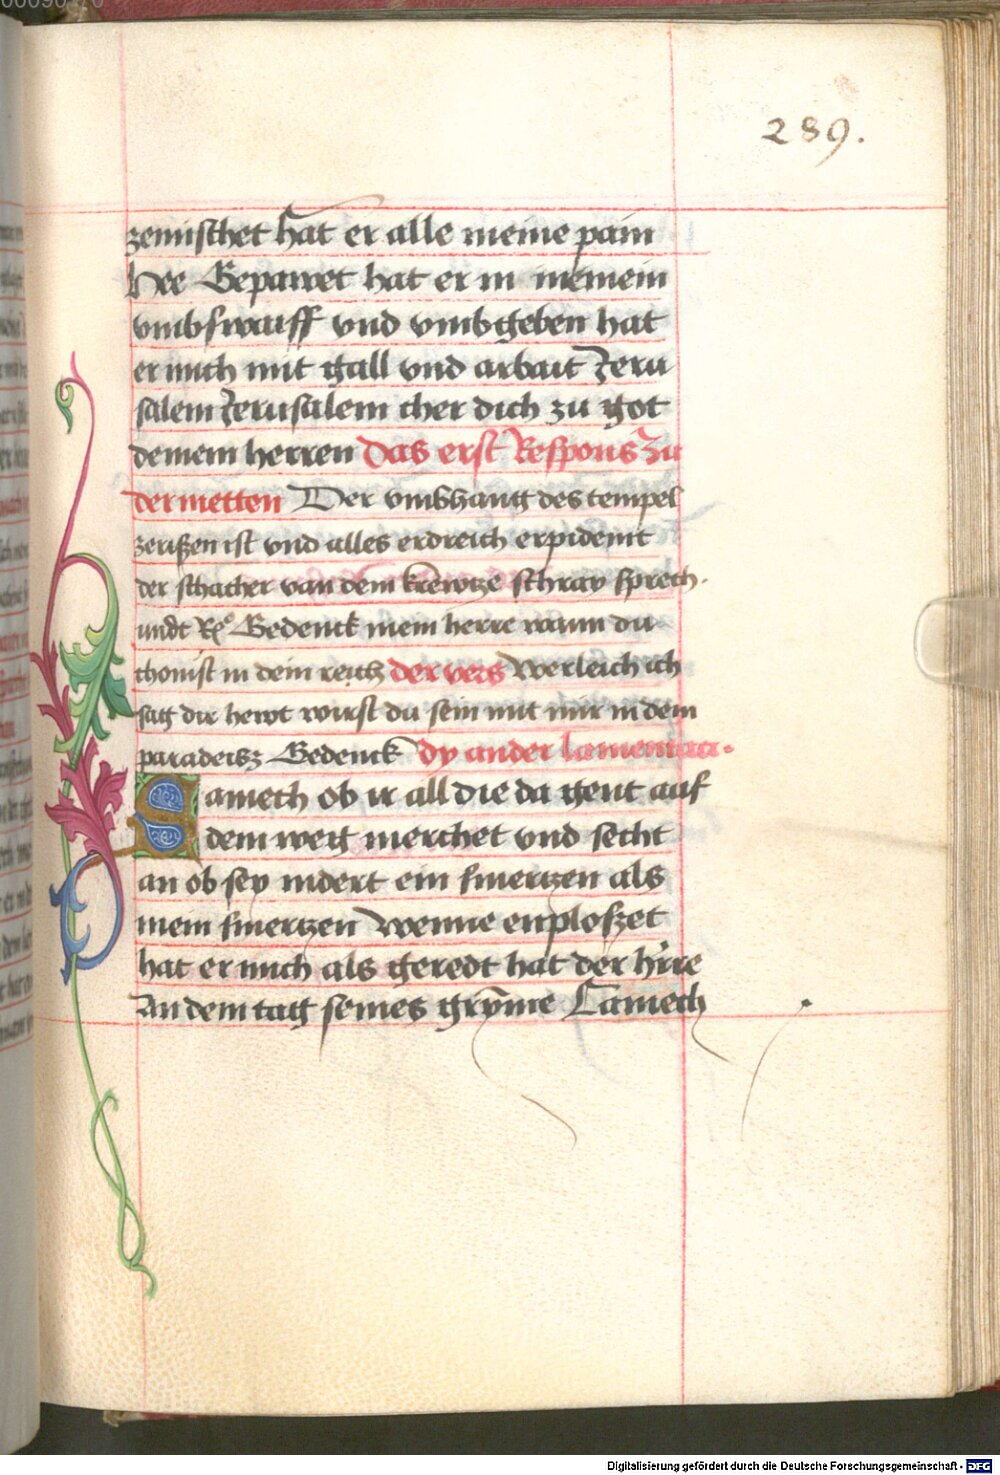 289.
zemischet hat er alle meine pain
Hee Gepawet hat er in meinem
vmbswaiff vnd vmbgeben hat
er mich mit gall vnd arbait Jeru
salem Jerusalem cher dich zu got
deinem herren Das erst Respons zu
der metten Der vmbhang des tempel
zerißen ist vnd alles erdreich erpidemt
der schacher van dem krewtze schray sprech-
undt Rx Gedenck mein herre wann du
chomst in dein reich der vers Werleich ich
sag dir hewt wirst du sein mit mir in dem
paradeisz Gedenck dy ander lamentacz-
Lamech ob ir all die da gent auf
dem weg merchet vnd secht
an ob sey indert ein smertzen als
mein smertzen Wenne enploszet
hat er mich als geredt hat der h're
An dem tag seines grymme Lamech
Digitalisierung gefördert durch die Deutsche Forschungsgemeinschaft - DFG